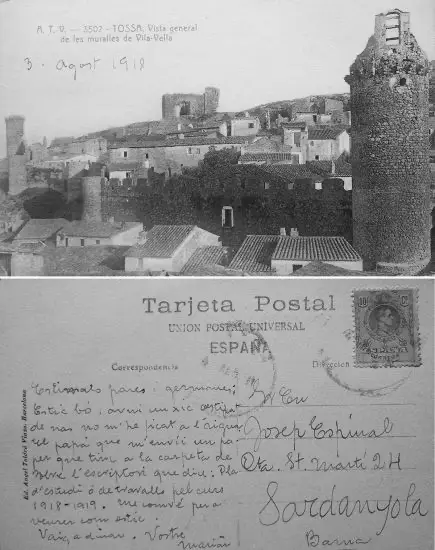 A. T. V. - 3502 - TOSSA: Vista general
de les muralles de Vila-Vella
3. agost 1918
Tarjeta Postal
UNION POSTAL UNIVERSAL
ESPAÑA
Correspondencia
Dirección
Ed. Angel Toldrá Viazo. Barcelona
Estimats pares i germanes;
Estic bó, avui un xic
de nas no m'he ficat a l'aigua
El papà que m'envii un pa-
per que tinc a la carpeta de
l'escriptori que diu: Pla
d'estudi ó de treballs pel curs
1918-1919. me convé per a
veurer com estic.
Vaig a dinar. Vostre
Marian
Josep Espinal
Cta. St. Martí 24
Sardanyola
Barna
10 CS